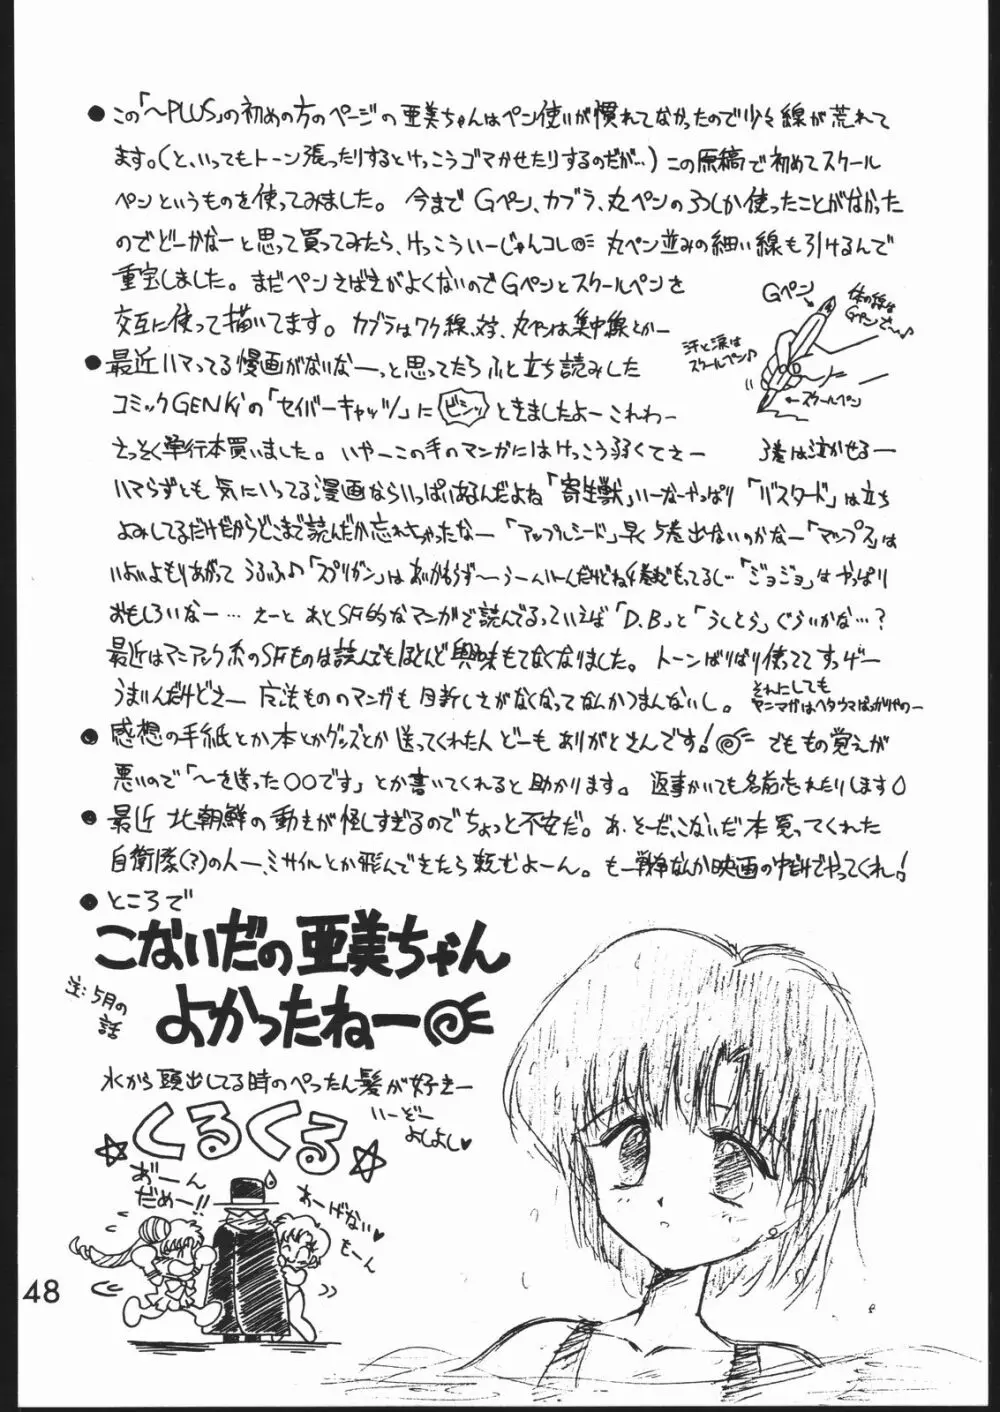 ●この「～PLUS」の初めの方のページの亜美ちゃんはペン使いが慣れてなかったので少々線が荒れて
ます。(と、いってもトーン張ったりするとけっこうゴマかせたりするのだが…)この原稿で初めてスクール
ペンというものを使ってみました。今までGペン、カブラ、丸ペンの3つしか使ったことがなかった
のでどーかなーと思って買ってみたら、けっこういーじゃんコレ 丸ペン並みの細い線も引けるんで
重宝しました。まだペンさばきがよくないのでGペンとスクールペンを
交互に使って描いてます。カブラはワク線、丸ペンは集中線とかー
Gペン
体の線はGペンで♪
汗と涙は
スクールペン♪
←スクールペン
●最近ハマってる漫画がないなーっと思ってたらふと立ち読みした
コミックGENKiの「セイバーキャッツ」に ビシッ ときましたよーこれわー
さっそく単行本買いました。いやーこの手のマンガにはけっこう弱くてさー 3巻は泣かせるー
ハマらずとも気にいってる漫画ならいっぱいあるんだよね「寄生獣」いーなーやっぱり「バスタード」は立ち
よみしてるだけだからどこまで読んだか忘れちゃったなー「アップルシード」早く5巻出ないのかなー「マップス」は
いよいよもりあがって うふふ♪「スプリガン」はあいかわらず～うーんいーんだけどね「ジョジョ」はやっぱり
おもしろいなー…えーと あとSF的なマンガで読んでるっていえば「D.B」と「うしとら」ぐらいかな…?
最近はマニアック系のSFものは読んでもほとんど興味もてなくなりました。トーンばりばり使ってて すっげー
うまいんだけどさー 魔法もののマンガも目新しさがなくなってなんかつまんないし。
それにしても
ヤンマガはヘタウマばっかりやのー
●感想の手紙とか本とかグッズとか送ってくれた人 どーもありがとさんです! でもも の覚えが
悪いので「～を送った○○です」とか書いてくれると助かります。返事かいても名前忘れたりします
●最近 北朝鮮の動きが怪しすぎるのでちょっと不安だ。あ、そーだ、こないだ本買ってくれた
自衛隊(?)の人ー、ミサイルとか飛んできたら頼むよーん。もー戦争なんか映画の中だけでやってくれ!
●ところで
こないだの亜美ちゃん
よかったねー
注:5月の
話
水から頭出してる時のぺったん髪が好きー
いーぞー
よしよし♥
☆くるくる☆
あーん
だめー!!
あーげない♥
もーん
48